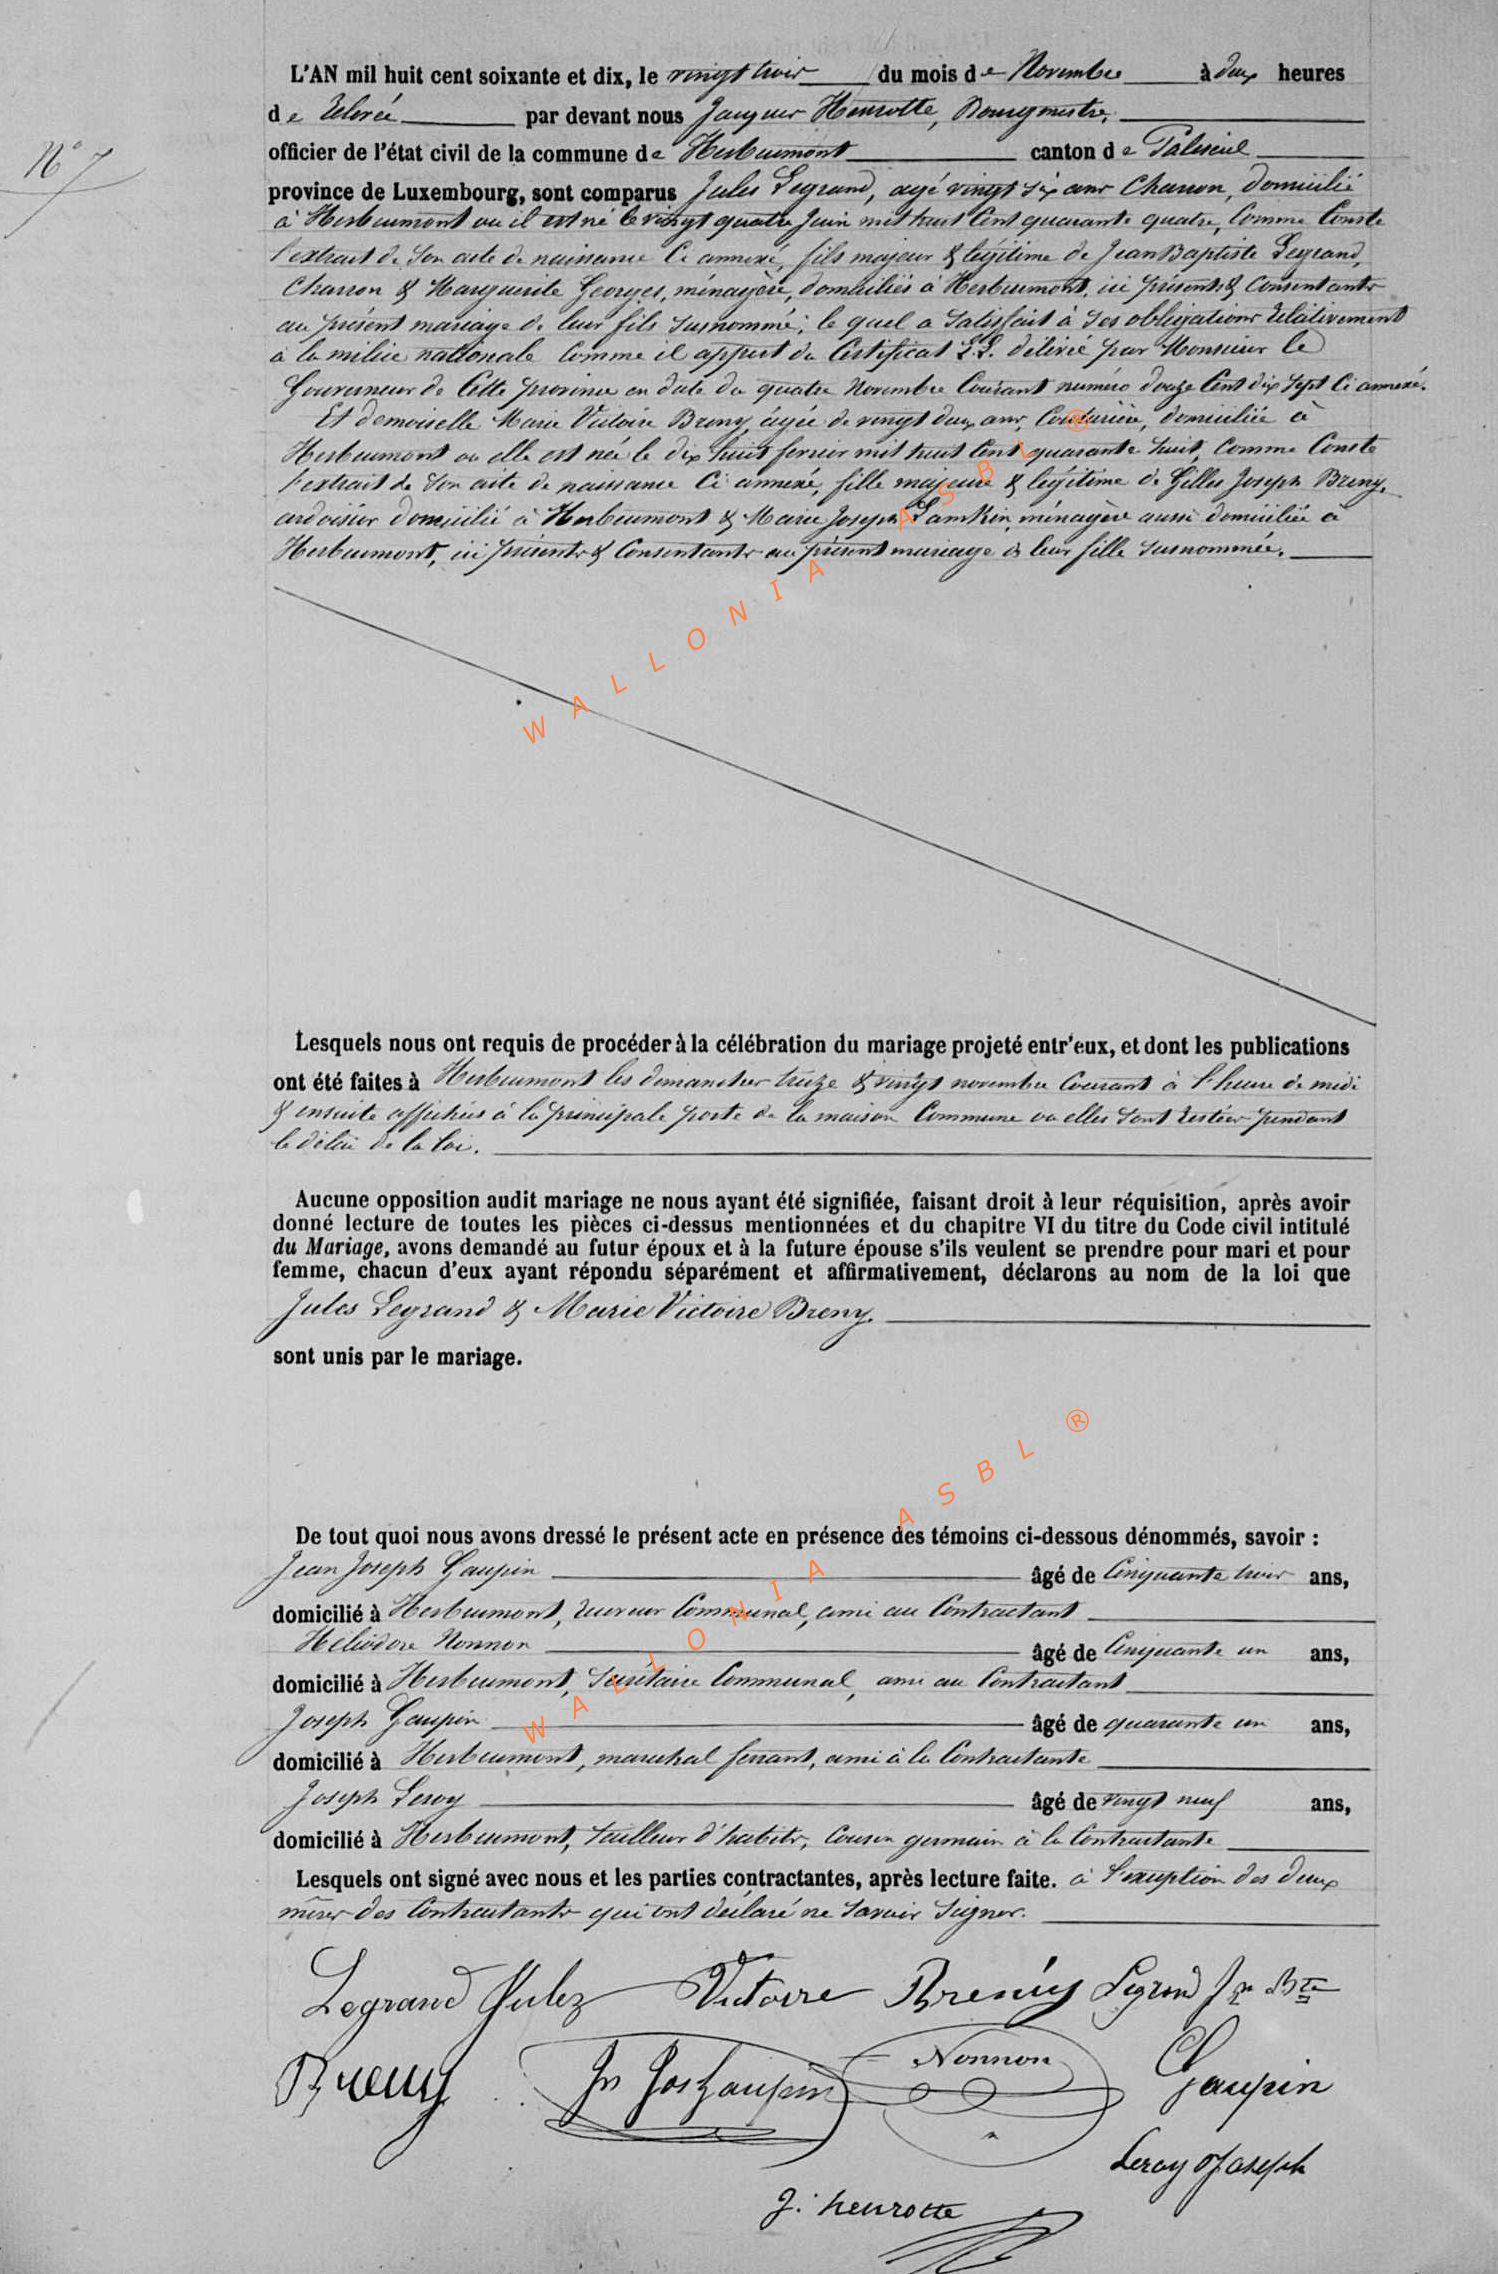 N° 7
L'AN mil huit cent soixante et dix, le vingt trois du mois de Novembre à deux heures
de relevée par devant nous Jacques Henrotte, Bourgmestre,
officier de l'état civil de la commune de Herbeumont canton de Paliseul
province de Luxembourg, sont comparus Jules Legrand, agé vingt six ans Charron, domicilié
à Herbeumont ou il est né le vingt quatre Juin mil huit Cent quarante quatre, Comme Conste
l'extrait de Son acte de naissance Ci annexé, fils majeur & légitime de Jean Baptiste Legrand,
Charron & Marguerite Georges, ménagère, domiciliés à Herbeumont, ici présents & Consentants
au présent mariage de leur fils susnommé; le quel a Satisfait à Ses obligations relativement
à la milice nationale Comme il appert du Certificat délivré par Monsieur le
Gouverneur de Cette province en date du quatre Novembre Courant numéro douze Cent dix Sept Ci annexé.
Et demoiselle Marie Victoire Breny, âgée de vingt deux ans, Couturière, domiciliée à
Herbeumont ou elle est née le dix huit fevrier mil huit Cent quarante huit, Comme Conste
l'extrait de Son acte de naissance Ci annexé, fille majeure & légitime de Gilles Joseph Breny,
ardoisier domicilié à Herbeumont & Marie Joseph Lamkin, ménagère aussi domiciliée à
Herbeumont, ici présents & Consentants au présent mariage de leur fille susnommée.
WALLONIA ASBL ®
Lesquels nous ont requis de procéder à la célébration du mariage projeté entr'eux, et dont les publications
ont été faites à Herbeumont les dimanches treize & vingt novembre Courant à l'heure de midi
& ensuite affichées à la principale porte de la maison Commune ou elles sont restées pendant
le délai de la loi.
Aucune opposition audit mariage ne nous ayant été signifiée, faisant droit à leur réquisition, après avoir
donné lecture de toutes les pièces ci-dessus mentionnées et du chapitre VI du titre du Code civil intitulé
du Mariage, avons demandé au futur époux et à la future épouse s'ils veulent se prendre pour mari et pour
femme, chacun d'eux ayant répondu séparément et affirmativement, déclarons au nom de la loi que
Jules Legrand & Marie Victoire Breny.
sont unis par le mariage.
WALLONIA ASBL ®
De tout quoi nous avons dressé le présent acte en présence des témoins ci-dessous dénommés, savoir :
Jean Joseph Gaupin âgé de Cinquante trois ans,
domicilié à Herbeumont, receveur Communal, ami au Contractant
Héliodore Nonnon âgé de Cinquante un ans,
domicilié à Herbeumont, Secrétaire Communal, ami au Contractant
Joseph Gaupin âgé de quarante un ans,
domicilié à Herbeumont, marechal ferrant, ami à la Contractante
Joseph Leroy âgé de vingt neuf ans,
domicilié à Herbeumont, tailleur d'habits, Cousin germain à la Contractante
Lesquels ont signé avec nous et les parties contractantes, après lecture faite. à l'exception des deux
mères des Contractants qui ont déclaré ne Savoir Signer.
Legrand Julez Victoire Breny Legrand Jn Bte
Breny Jn Jos Gaupin Nonnon Gaupin
Leroy Joseph
J. henrotte